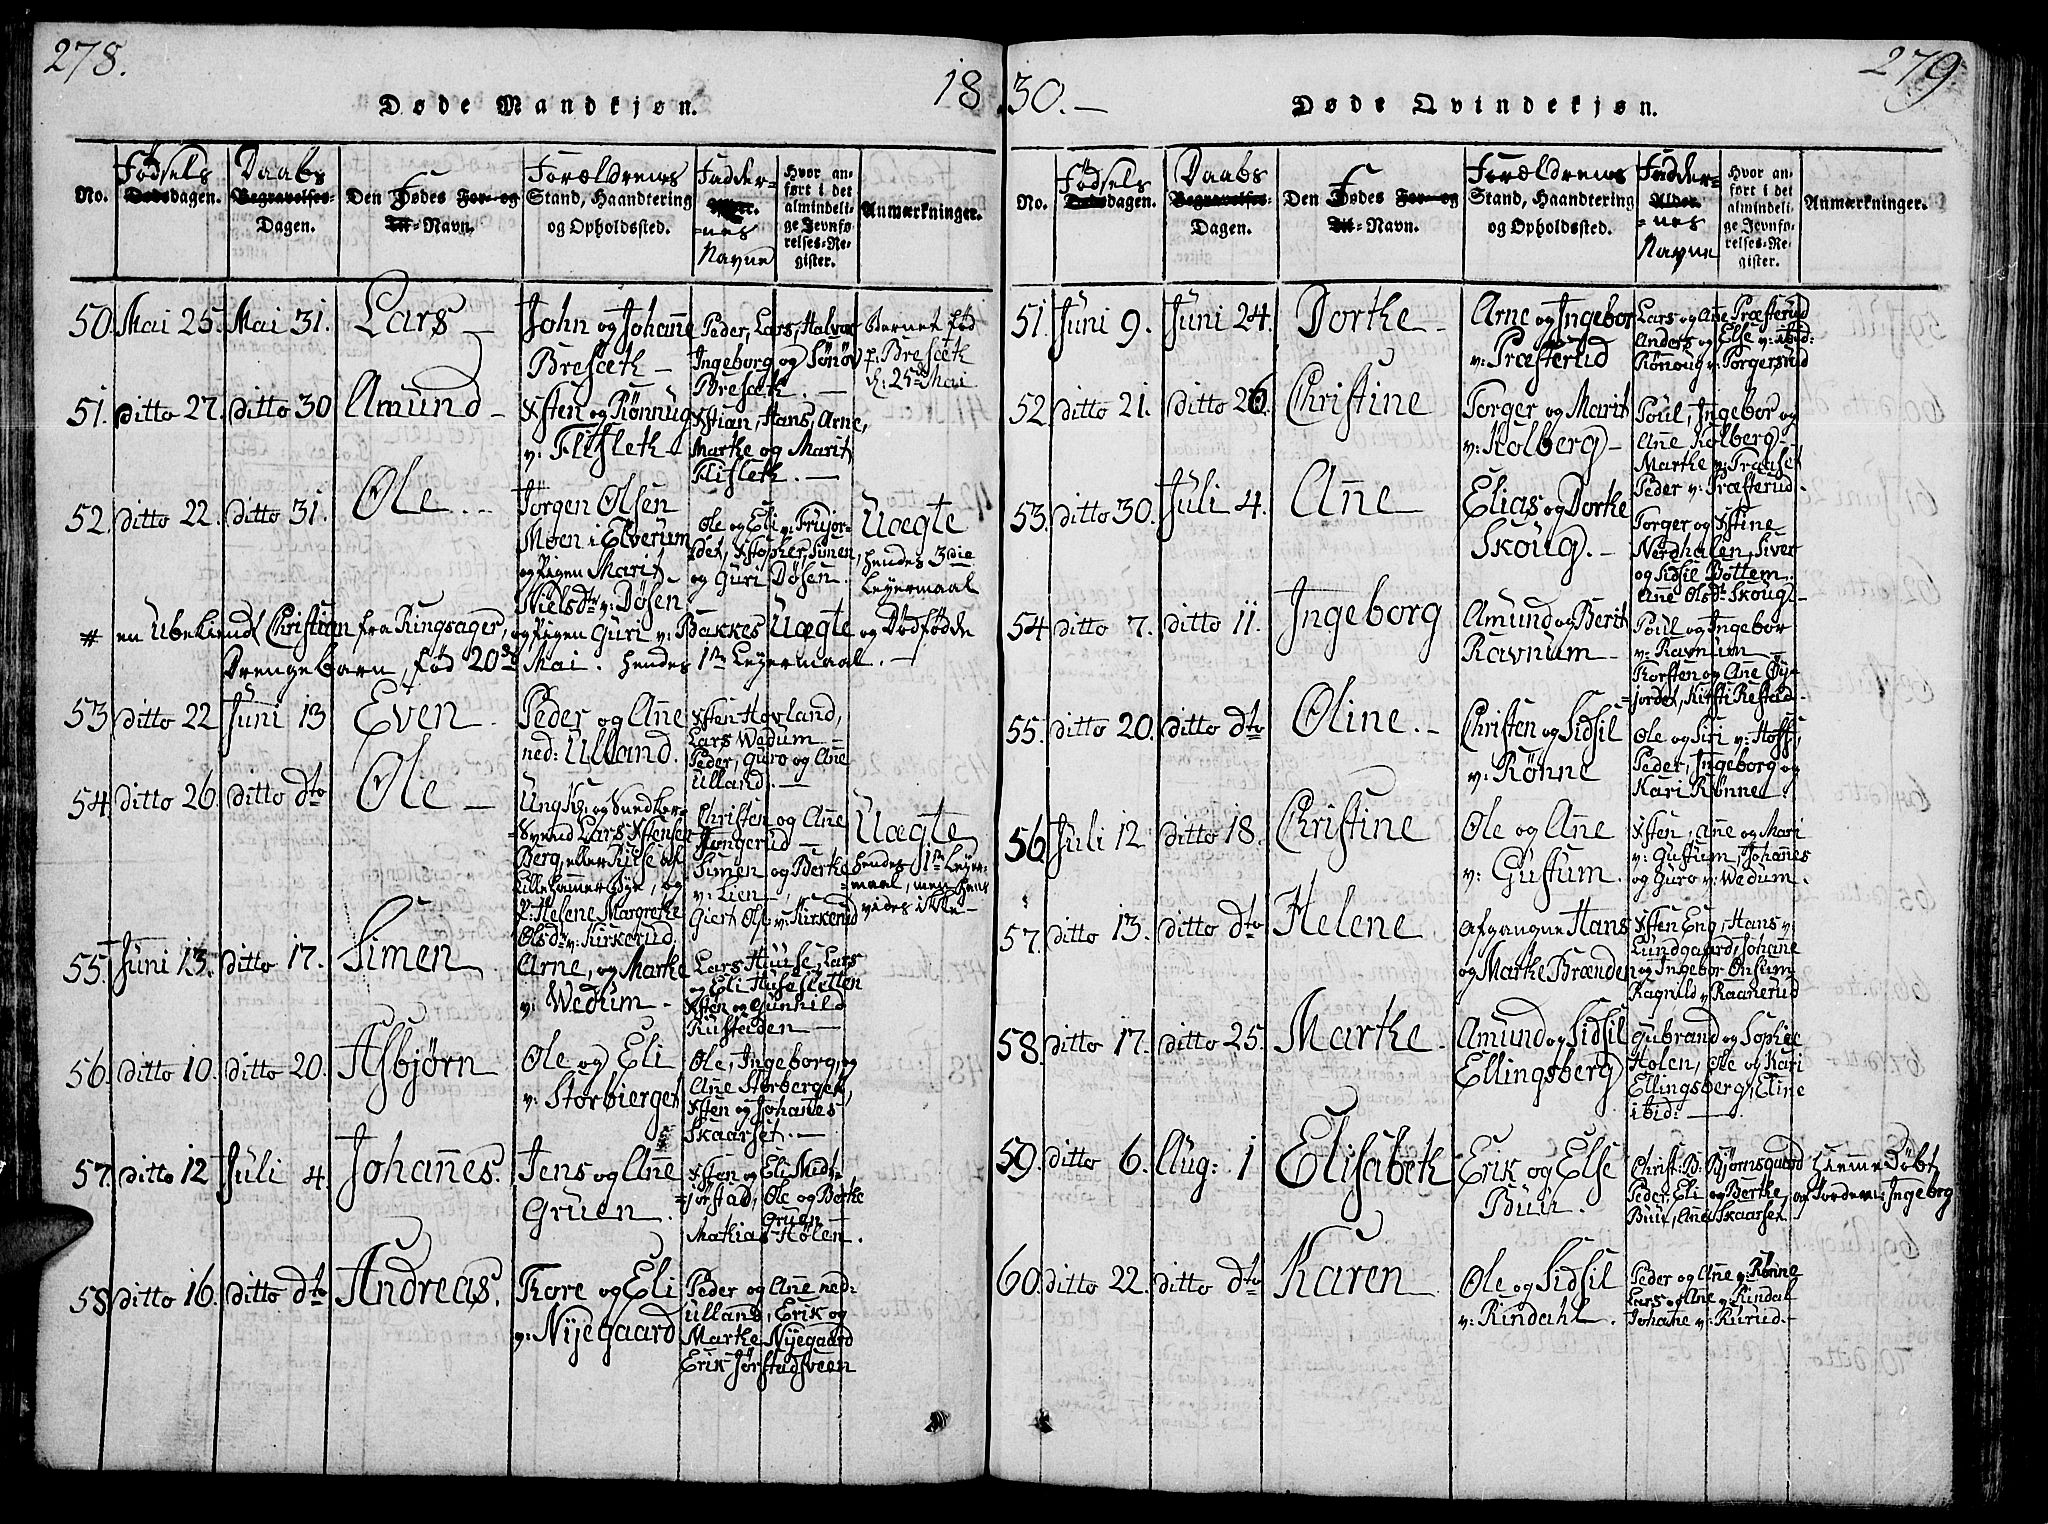 278.
18
Døde Mandkjøn.
No.
Fødsels
Dødsdagen.
Daabs
Begravelses-
Dagen.
Den Fødes For- og
Til-Navn.
Forældrenes
Stand, Haandtering
og Opholdssted.
Fadder-
nes
Navne
Hvor an-
ført i det
almindeli-
ge Jevnfø-
relses-Re-
gister.
Anmærkninger.
50. Mai 25. Mai 31. Lars –
John og Johañe
Breseth –
Peder, Lars, Halvor
Ingeborg og Sønøv
Breseth. –
Barnet fød
p: Breseth
d: 25de Mai
51. Ditto 27. Ditto 30 Amund –
Xsten og Rønnug
v: Flisleth –
Xstian, Hans, Arne,
Marthe og Marit
Flisleth. –
52. Ditto 22. Ditto 31. Ole. –
Jørgen Olsen
Moen i Elverum
og Pigen Marit
Nielsdr v: Døsen
Ole og Eli v: Frujor-
det, Xstopher, Simen,
og Guri Døsen.
Uægte
hendes 3die
Leyermaal
# en Ubekiendt Christian fra Ringsager, og Pigen Guri v: Bakkes Uægte og Dødfødde
Drengebarn, fød 20de Mai. hendes 1ste Leyermaal. –
53 Ditto 22 Juni 13 Even.
Peder og Añe
ned: Ulland.
Xsten Hovland,
Lars Wedum –
Peder, Guro og Añe
Ulland. –
54. Ditto 26. Ditto dto Ole –
Ungk: og Snedker-
Svend Lars Xstensen
Berg, eller Ryise af
Lillehammer Bye, og
P: Helene Margrethe
Olsdr v: Kirkerud
Christen og Añe
Kongerud –
Simen og Berthe
v: Lien –
Giert Olsø v: Kirkerud
Uægte
hendes 1ste Leyer-
maal, men hans
vides ikke –
55. Juni 13. Ditto 17. Simen
Arne, og Marthe
v: Wedum –
Lars Huuse, Lars
og Eli Husesletten
Xsten og Gunhild
Rusteden –
56. Ditto 10. Ditto 20. Asbjørn
Ole og Eli
v: Storbierget
Ole, Ingeborg og
Añe Storberget,
Xsten og Johañes
Skaarset. –
57. Ditto 12 Juli 4. Johañes.
Jens og Añe
Gruen.
Xsten og Eli Midt-
jørstad, Ole og Berthe
Gruen –
Mathias Holen.
58. Ditto 16. Ditto dto Andreas.
Tore og Eli
v: Nijegaard
Peder og Añe ned:
Ulland, Erik og
Marthe Nijegaard
Erik Jørstadsveen
279
30. –
Døde Qvindekjøn.
No.
Fødsels
Dødsdagen.
Daabs
Begravelses-
Dagen.
Den Fødes For- og
Til-Navn.
Forældrenes
Stand, Haandtering
og Opholdssted.
Fadder-
Alder-
nes
Navne
Hvor an-
ført i det
almindeli-
ge Jevnfø-
relses-Re-
gister.
Anmærkninger.
51. Juni 9. Juni 24. Dorthe –
Arne og Ingebor
v: Præsterud
Lars og Añe Præsterud
Anders og Else v: ibid:
Rønnoug v: Torgersrud
52. Ditto 21. Ditto 26. Christine
Torger og Marit
v: Kolberg –
Poul, Ingebor og
Añe Kolberg –
Marthe v: Traaset
Peder v: Præsterud.
53. Ditto 30. Juli 4. Añe
Elias og Dorthe
Skoug. –
Torger og Xstine
Nerdhalen, Siver
og Sidsil Bottem,
Añe Olsdr Skoug –
54 Ditto 7. Ditto 11. Ingeborg
Amund og Berit
Ravnum –
Poul og Ingebor
v: Ravnum –
Torsten og Añe Øy-
jordet, Kirsti Restad
55. Ditto 20. Ditto dto Oline. –
Christen og Sidsil
v: Rønne
Ole og Siri v: Hoff,
Peder, Ingeborg og
Kari Rønne.
56 Juli 12 Ditto 18. Christine
Ole og Añe
v: Gustum.
Xsten, Añe og Mari
v: Gustum, Johañes
og Guro v: Wedum.
57. Ditto 13. Ditto dto Helene
afgangne Hans
og Marthe Brænden
Xsten Eng, Hans v:
Lundgaard, Johañe
og Ingebor Onsum,
Ragnild v: Raanerud
58. Ditto 17. Ditto 25. Marthe.
Amund og Sidsil
Ellingsberg
Gubrand og Sophie
Holen, Ole og Kari
Ellingsberg, Eline
ibid: –
59. Ditto 6. Aug: 1 Elisabeth
Erik og Else
Buu.
Christ: B: Bjørnsgaard
Peder, Eli og Berthe
Buu, Añe Skaarset
Hieme Døbt
af Jordem: Ingeborg
60. Ditto 22. Ditto dto Karen
Ole og Sidsil
v: Rindahl.
Peder og Añe v: Rønne
Lars og Añe v: Rindal
Johañe v: Rurud. –